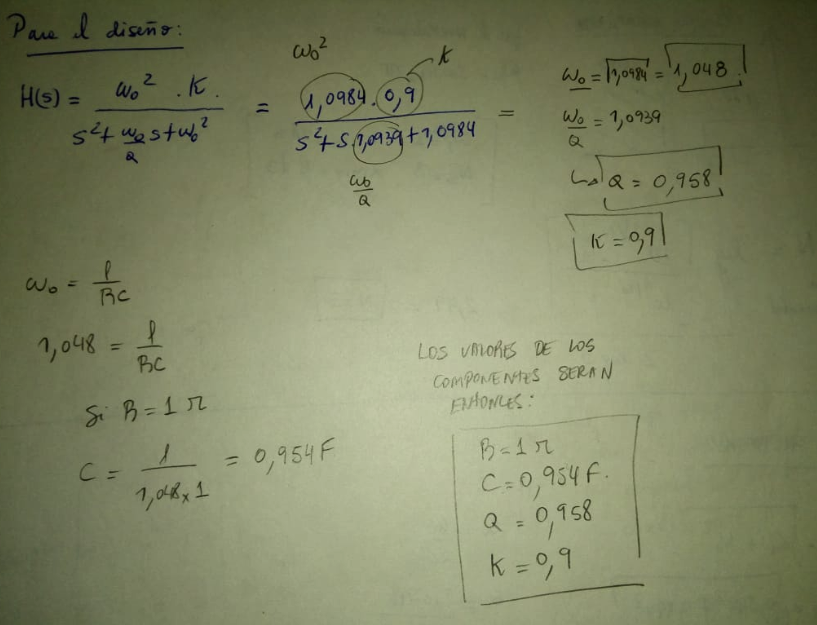 Para el diseño:
H(s) = ω₀² . K / (s² + ω₀/Q s + ω₀²) = 1,0984 . 0,9 / (s² + s.1,0939 + 1,0984) =
ω₀²
K
ω₀/Q
ω₀ = √1,0984 = 1,048
ω₀/Q = 1,0939
↳ Q = 0,958
K = 0,9
ω₀ = 1/BC
1,048 = 1/BC
Si B = 1 Ω
C = 1/(1,048 × 1) = 0,954 F
LOS VALORES DE LOS
COMPONENTES SERAN
ENTONCES:
B = 1 Ω
C = 0,954 F.
Q = 0,958
K = 0,9